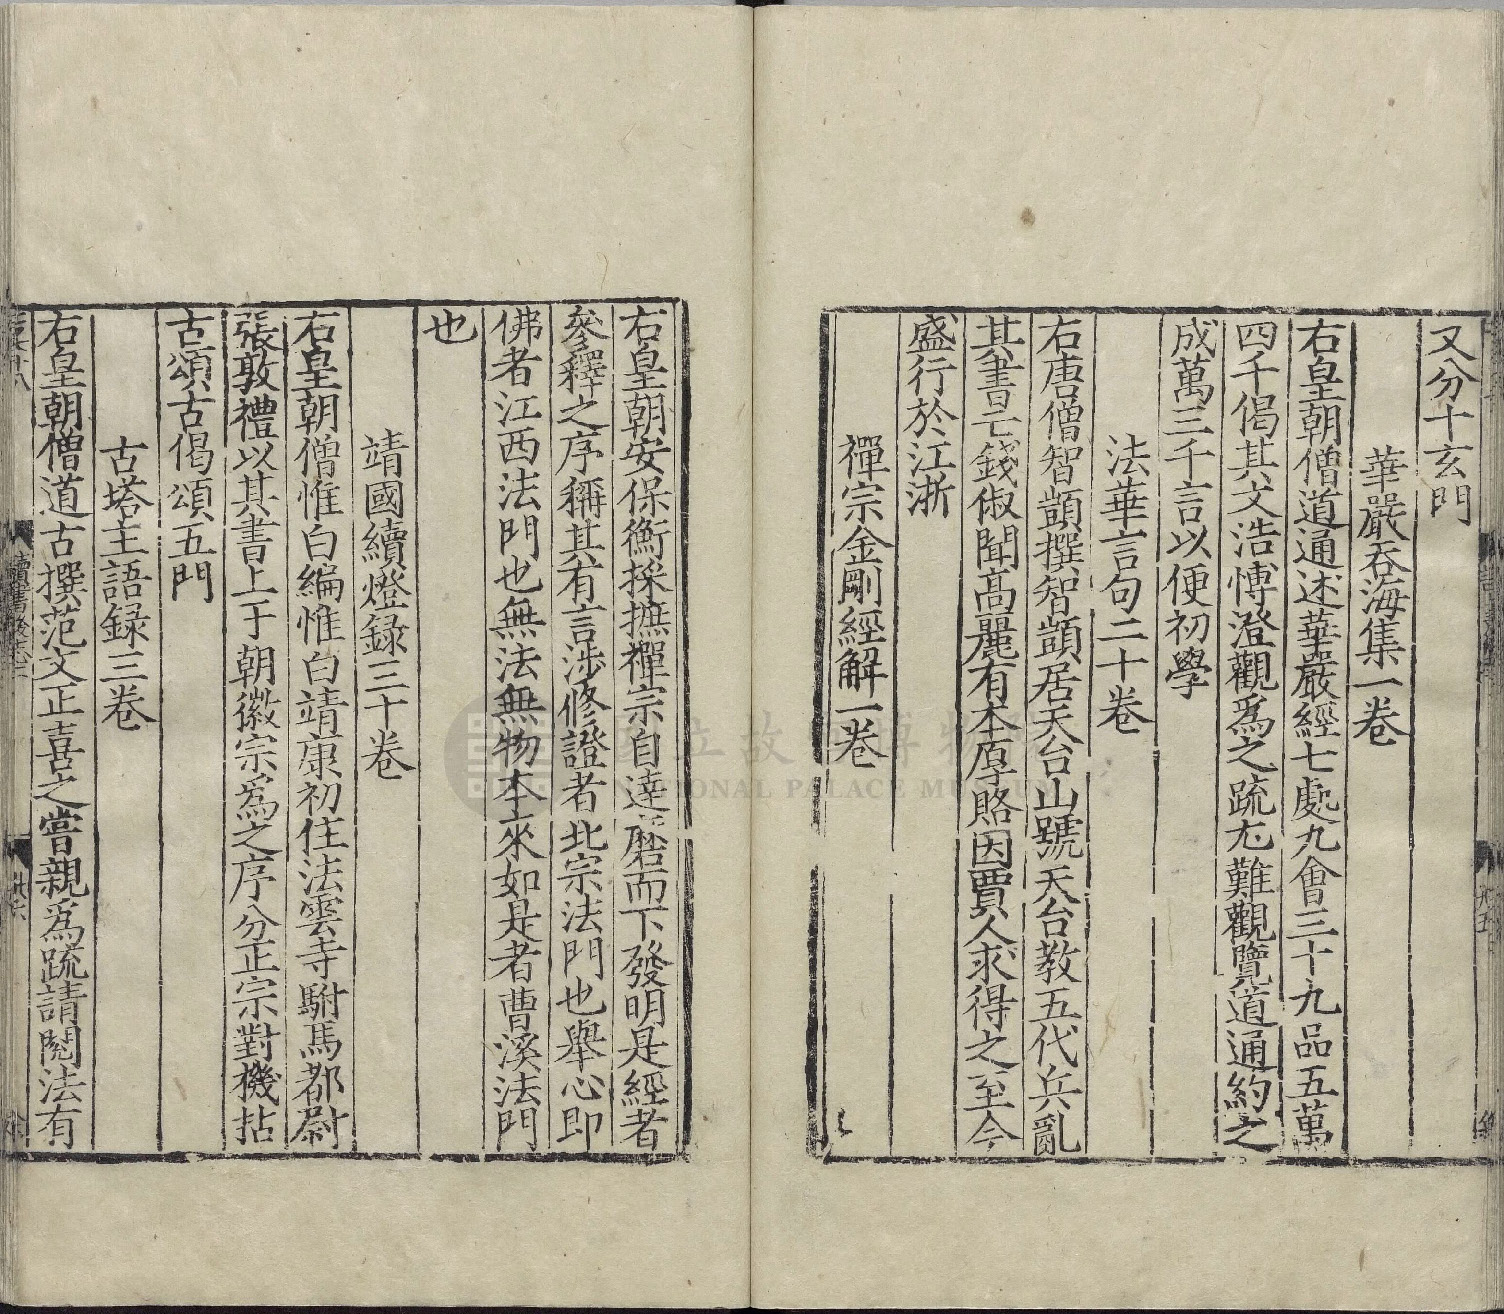 又分十玄門
華嚴吞海集一卷
右皇朝僧道通述華嚴經七處九會三十九品五萬
四千偈其文浩博澄觀爲之疏尤難觀覽道通約之
成萬三千言以便初學
法華言句二十卷
右唐僧智顗撰智顗居天台山號天台教五代兵亂
其書亡錢俶聞高麗有本厚賂因賈人求得之至今
盛行於江浙
禪宗金剛經解一卷
右皇朝安保衡採摭禪宗自達磨而下發明是經者
參釋之序稱其有言涉修證者北宗法門也舉心即
佛者江西法門也無法無物本來如是者曹溪法門
也
靖國續燈録三十卷
右皇朝僧惟白編惟白靖康初住法雲寺駙馬都尉
張敦禮以其書上于朝徽宗爲之序分正宗對機拈
古頌古偈頌五門
古塔主語録三卷
右皇朝僧道古撰范文正喜之嘗親爲疏請閱法有
國立故宮博物院
NATIONAL PALACE MUSEUM